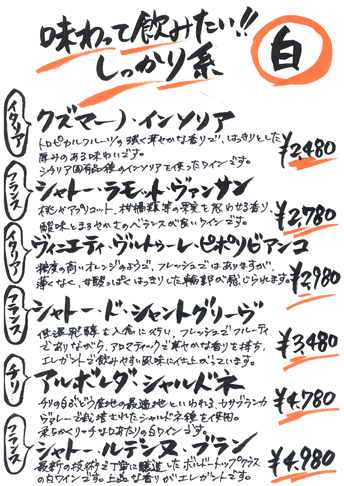 味わって飲みたい!!
しっかり系
白
イタリア
クズマーノ・インソリア
トロピカルフルーツの強く華やかな香りで、はっきりとした
厚みのある味わいです。
シチリア固有品種のインソリアを使ったワインです。
¥2,480
フランス
シャトー・ラモット・ヴァンサン
桃やアプリコット、柑橘類等の果実を思わせる香り、
酸味とまろやかさのバランスが良いワインです。
¥2,780
イタリア
ヴィニエティ・ヴィルトゥーレ・ピポリビアンコ
糖度の高いオレンジのようで、フレッシュではありますが、
薄くなく、甘酸っぱくはっきりした輪郭が感じられます。
¥2,980
フランス
シャトー・ド・シャントグリーヴ
低温発酵を入念に行い、フレッシュでフルーティ
でありながら、アロマティックで華やかな香りを持ち、
エレガントで飲みやすい風味に仕上がっています。
¥3,480
チリ
アルボレダ・シャルドネ
チリの白ぶどう産地の最適地といわれる、カサブランカ
ヴァレーで栽培されたシャルドネ種を使用。
柔らかくリッチな口あたりの白ワインです。
¥4,780
フランス
シャトー・ルテシヌ・ブラン
最新の技術で丁寧に醸造したボルドートップクラス
の白ワインです。上品な香りがエレガントです。
¥4,980